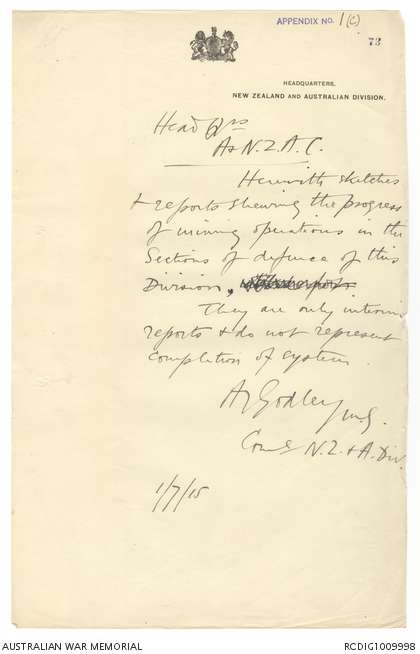 APPENDIX NO. 1(c)
73
HEADQUARTERS,
NEW ZEALAND AND AUSTRALIAN DIVISION.
Head Qrs
A & N.Z.A.C.
Herewith sketches
& reports shewing the progress
of mining operations in the
Sections of defence of this
Division,
They are only interim
reports & do not represent
completion of system
A J Godley M.G.
Comdg N.Z. & A. Div.
1/7/15
AUSTRALIAN WAR MEMORIAL
RCDIG1009998